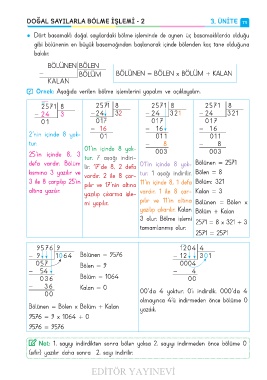 DOĞAL SAYILARLA BÖLME İŞLEMİ - 2
3. ÜNİTE 11
Dört basamaklı doğal sayılardaki bölme işleminde de aynen üç basamaklılarda olduğu
gibi bölünenin en büyük basamağından başlanarak içinde bölenden kaç tane olduğuna
bakılır.
BÖLÜNEN BÖLEN
– BÖLÜM
KALAN
BÖLÜNEN = BÖLEN x BÖLÜM + KALAN
Örnek: Aşağıda verilen bölme işlemlerini yapalım ve açıklayalım.
2571 8
– 24 3
01
2'nin içinde 8 yok-
tur.
25'in içinde 8, 3
defa vardır. Bölüm
kısmına 3 yazılır ve
3 ile 8 çarpılıp 25'in
altına yazılır.
2571 8
– 24 32
017
– 16
01
01'in içinde 8 yok-
tur. 7 aşağı indiri-
lir. 17'de 8, 2 defa
vardır. 2 ile 8 çar-
pılır ve 17'nin altına
yazılıp çıkarma işle-
mi yapılır.
2571 8
– 24 321
017
– 16
011
– 8
3
01'in içinde 8 yok-
tur. 1 aşağı indirilir.
11'in içinde 8, 1 defa
vardır. 1 ile 8 çar-
pılır ve 11'in altına
yazılıp çıkarılır. Kalan
3 olur. Bölme işlemi
tamamlanmış olur.
2571 8
– 24 321
017
– 16
011
– 8
003
Bölünen = 2571
Bölen = 8
Bölüm: 321
Kalan = 3
Bölünen = Bölen x
Bölüm + Kalan
2571 = 8 x 321 + 3
2571 = 2571
9576 9
– 9 1064
057
– 54
036
– 36
00
Bölünen = 9576
Bölen = 9
Bölüm = 1064
Kalan = 0
Bölünen = Bölen x Bölüm + Kalan
9576 = 9 x 1064 + 0
9576 = 9576
1204 4
– 12 301
0004
– 4
00
00'da 4 yoktur, 0'ı indirdik. 000'da 4
olmayınca 4'ü indirmeden önce bölüme 0
yazdık.
Not: 1. sayıyı indirdikten sonra bölen yoksa 2. sayıyı indirmeden önce bölüme 0
(sıfır) yazılır daha sonra 2. sayı indirilir.
EDİTÖR YAYINEVİ